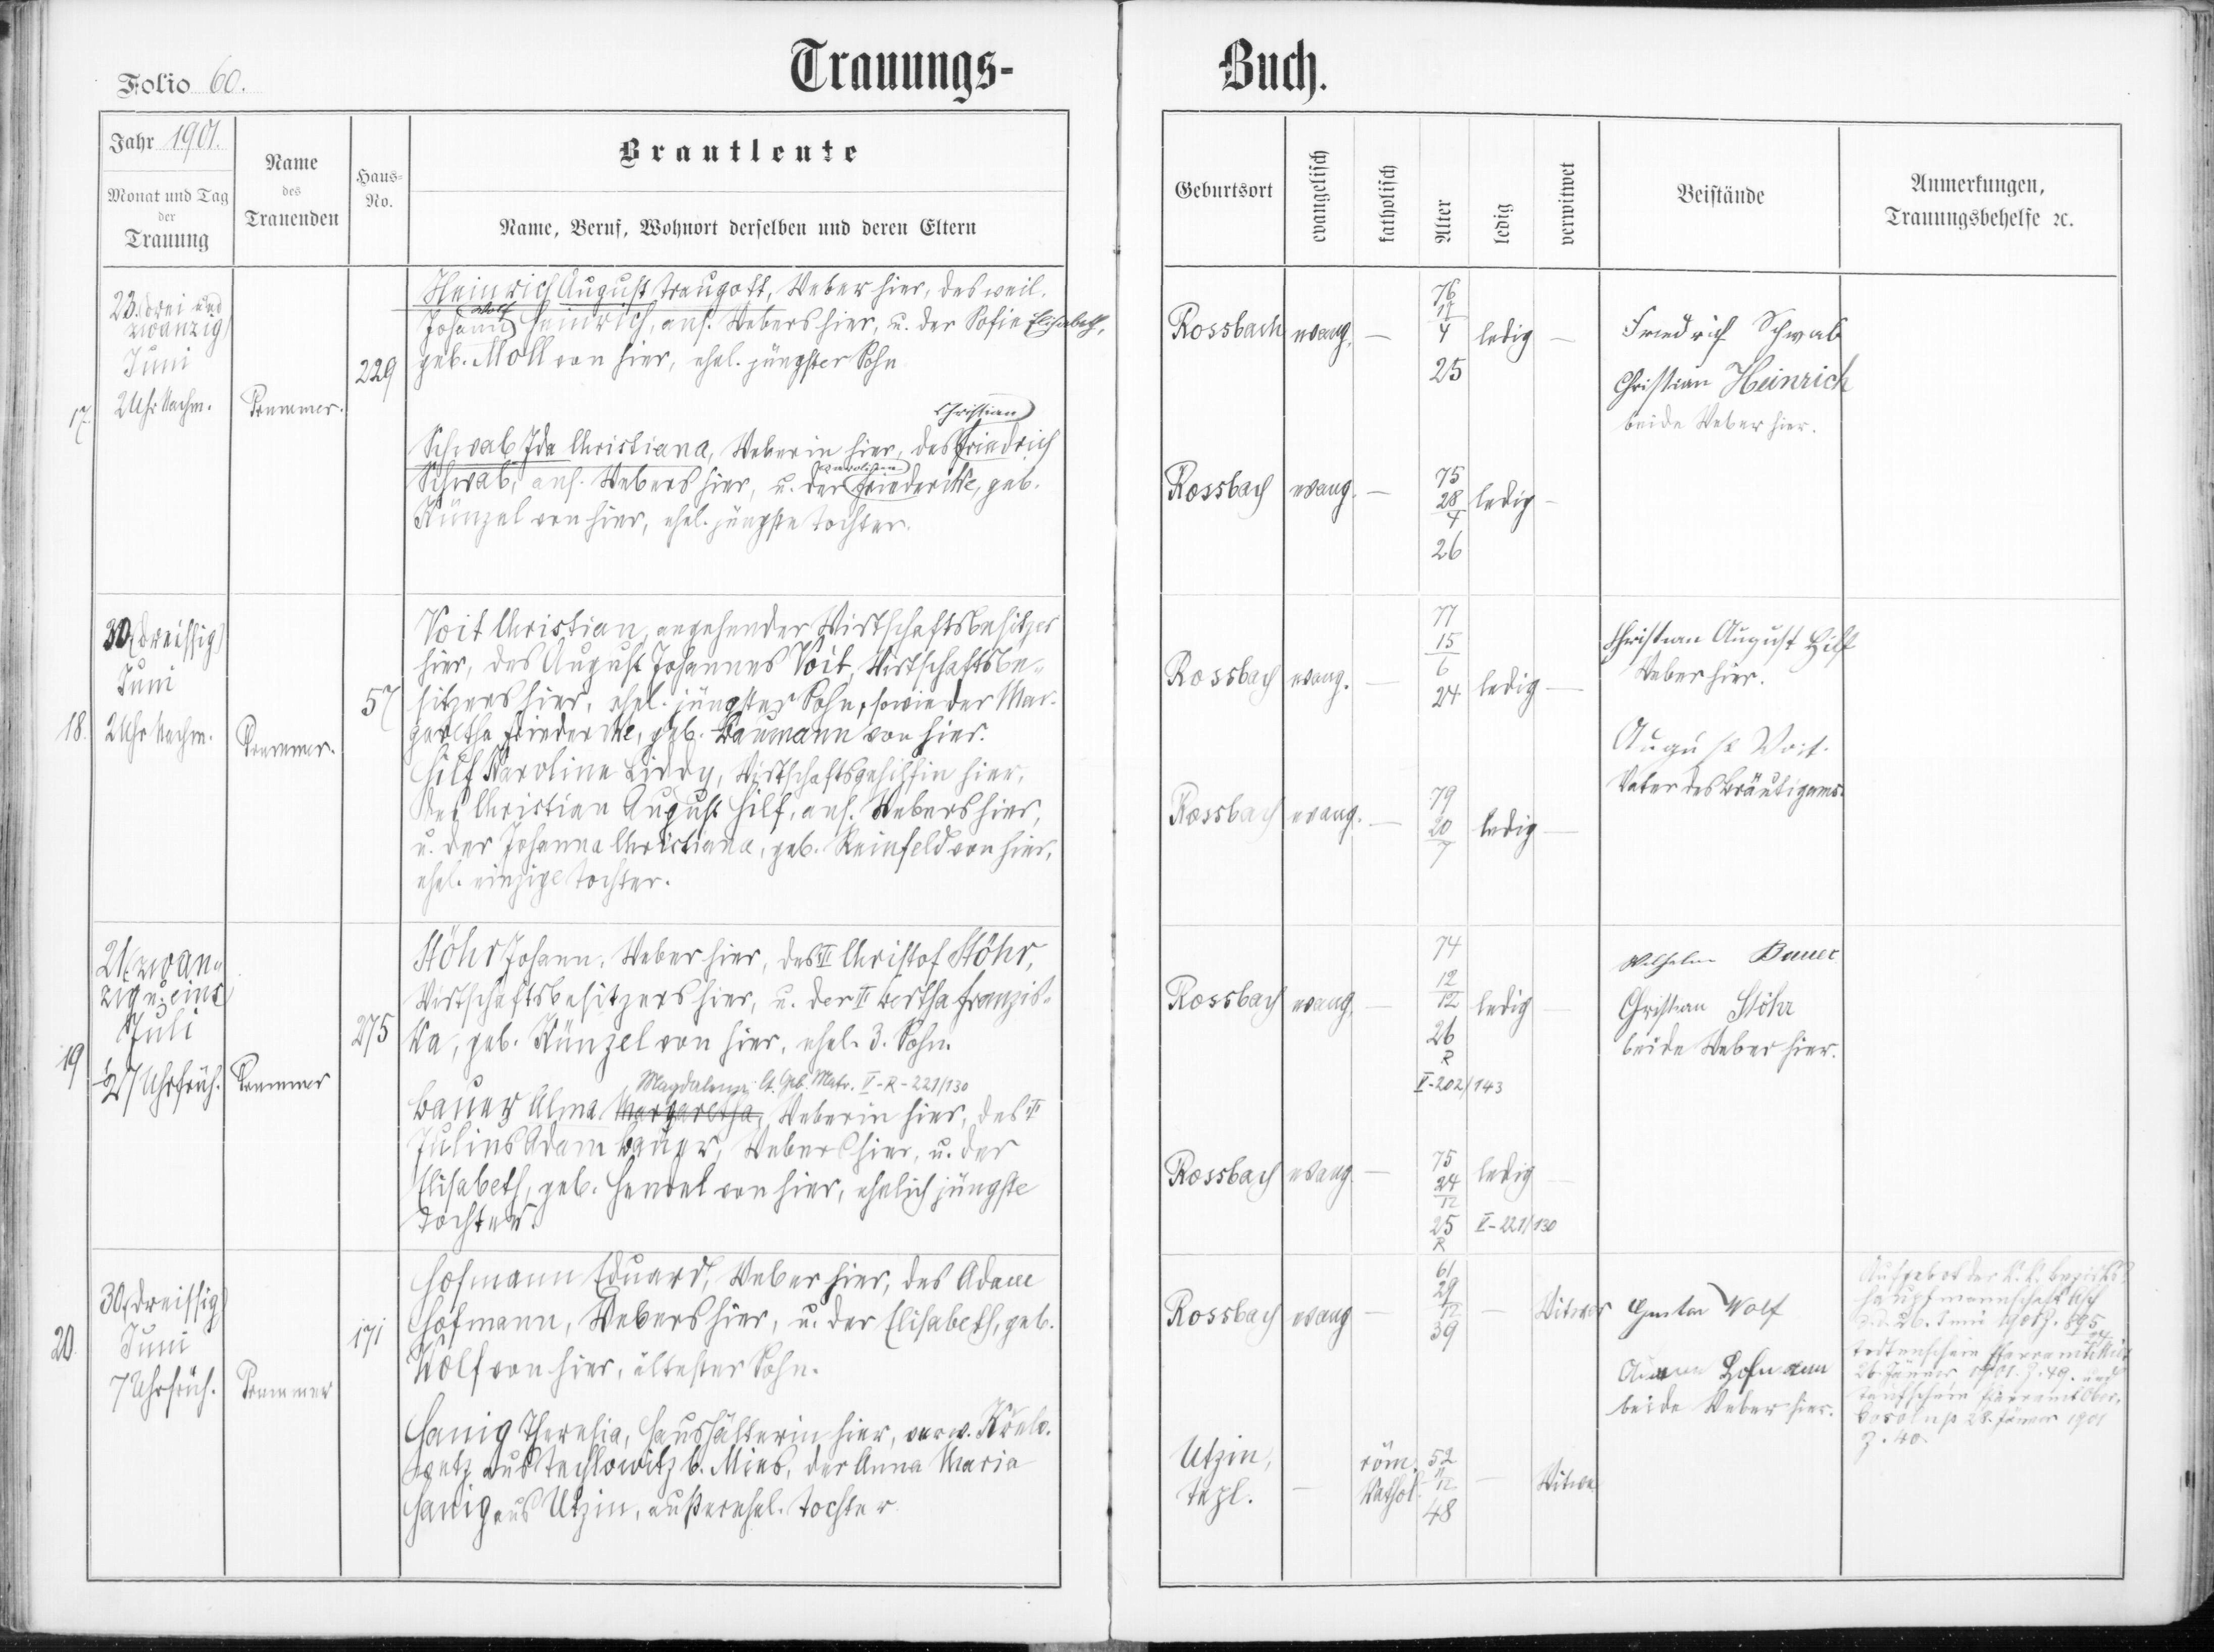 Trauungs-
Buch.
Folio 60.
Jahr 1901.
Monat und Tag
der
Trauung
Name
des
Trauenden
Haus-
No.
Brautleute
Name, Beruf, Wohnort derselben und deren Eltern
Geburtsort
evangelisch
katholisch
Alter
ledig
verwitwet
Beistände
Anmerkungen,
Trauungsbehelfe ꝛc.
17.
23. (drei und
zwanzig)
Juni
2 Uhr Nachm.
229
Heinrich August Traugott, Weber hier, des weil.
Wolf
Johann Heinrich, ans. Webers hier, u. der Sofie Elisabeth,
geb. Moll von hier, ehel. jüngster Sohn
Christian
Schwab Ida Christiana, Weberin hier, des Friedrich
Karoline
Schwab, ans. Webers hier, u. der Friedericke, geb.
Künzel von hier, ehel. jüngste Tochter.
Rossbach evang. — 76 17/4 25 ledig —
Friedrich Schwab
Christian Heinrich
beide Weber hier.
Rossbach evang. — 75 28/4 26 ledig —
18.
30. (dreissig)
Juni
2 Uhr Nachm.
57
Voit Christian, angehender Wirtschaftsbesitzer
hier, des August Johannes Voit, Wirtschaftsbe-
sitzers hier, ehel. jüngster Sohn, sowie der Mar-
garetha Friedericke, geb. Baumann von hier.
Hilf Karoline Liddy, Wirtschaftsgehilfin hier,
des Christian August Hilf, ans. Webers hier,
u. der Johanna Christiana, geb. Reinfeld von hier,
ehel. einzige Tochter.
Rossbach evang. — 77 15/6 24 ledig —
Christian August Hilf
Weber hier.
August Voit.
Vater des Bräutigams.
Rossbach evang. — 79 20/7 ledig —
19
21. (zwan-
zig u. eins)
Juli
½7 Uhr früh.
275
Stöhr Johann, Weber hier, des II Christof Stöhr,
Wirtschaftsbesitzers hier, u. der II Bertha Franzis-
ka, geb. Künzel von hier, ehel. 3. Sohn.
Magdalena lt. Geb. Matr. V-R-221/130
Bauer Alma Margaretha, Weberin hier, des II
Julius Adam Bauer, Webers hier, u. der
Elisabeth, geb. Hendel von hier, ehelich jüngste
Tochter.
Rossbach evang. — 74 12/12 26 ledig —
R
V-202/143
Wilhelm Bauer
Christian Stöhr
beide Weber hier.
Rossbach evang. — 75 24/12 25 ledig —
R
V-221/130
20.
30. (dreissig)
Juni
7 Uhr früh.
171
Hofmann Eduard, Weber hier, des Adam
Hofmann, Webers hier, u. der Elisabeth, geb.
Wolf von hier, ältester Sohn.
Hanig Theresia, Haushälterin hier, verw.
aus Techlowitz b. Mies, der Anna Maria
Hanig aus Utzin, außerehel. Tochter
Rossbach evang — 61 29/12 39 — Witwer
Gustav Wolf
Hofmann
beide Weber hier.
Aufgebot der k. k. Bezirks-
hauptmannschaft Asch
d.d. 26. Juni 1901 Z. 895
Todtenschein Pfarramt Mies
26. Jänner 1901. Z. 49. und
Taufschein Pfarramt
28. Jänner 1901
Z. 40.
Utzin,
Tepl. — röm. kathol. 52 11/12 48 — Witwe